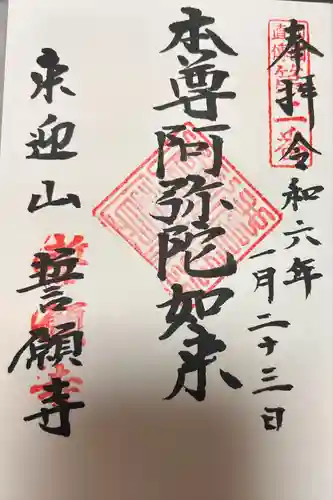 奉拝 令和六年
一月二十三日
本尊阿弥陀如来
来迎山
誓願寺